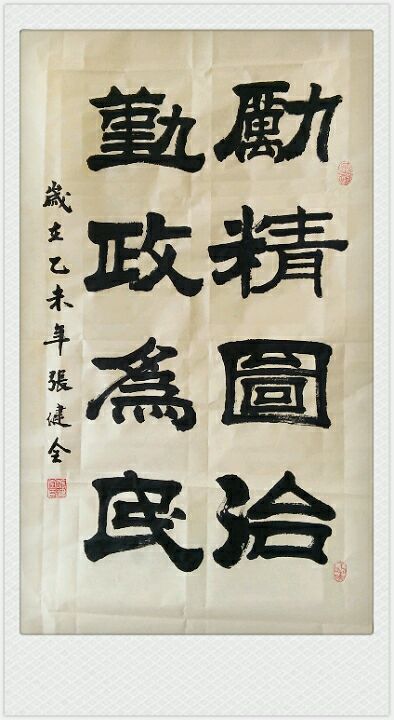 勵精圖治
勤政為民
歲在乙未年張健全